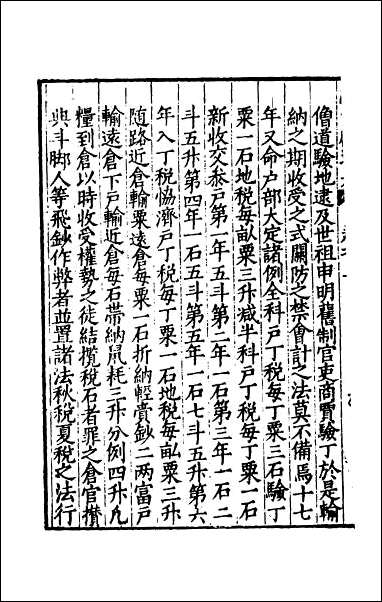 僧道驗地逮及世祖申明舊制官吏商賈驗丁於是輸
納之期收受之式關防之禁會計之法莫不備焉十七
年又命户部大定諸例全科戸丁稅每丁粟三石驗丁
粟一石地稅每畝粟三升減半科戸丁稅每丁粟一石
新收交叅戸第一年五斗第二年一石第三年一石二
斗五升第四年一石五斗第五年一石七斗五升第六
年入丁稅恊濟戸丁稅每丁粟一石地稅每畝粟三升
随路近倉輸粟逺倉每粟一石折納輕賫鈔二兩富戸
輸逺倉下戸輸近倉每石帶納鼠耗三升分例四升凢
糧到倉以時收受權勢之徒結攬稅石者罪之倉官攅
典斗脚人等飛鈔作弊者並置諸法秋稅夏稅之法行